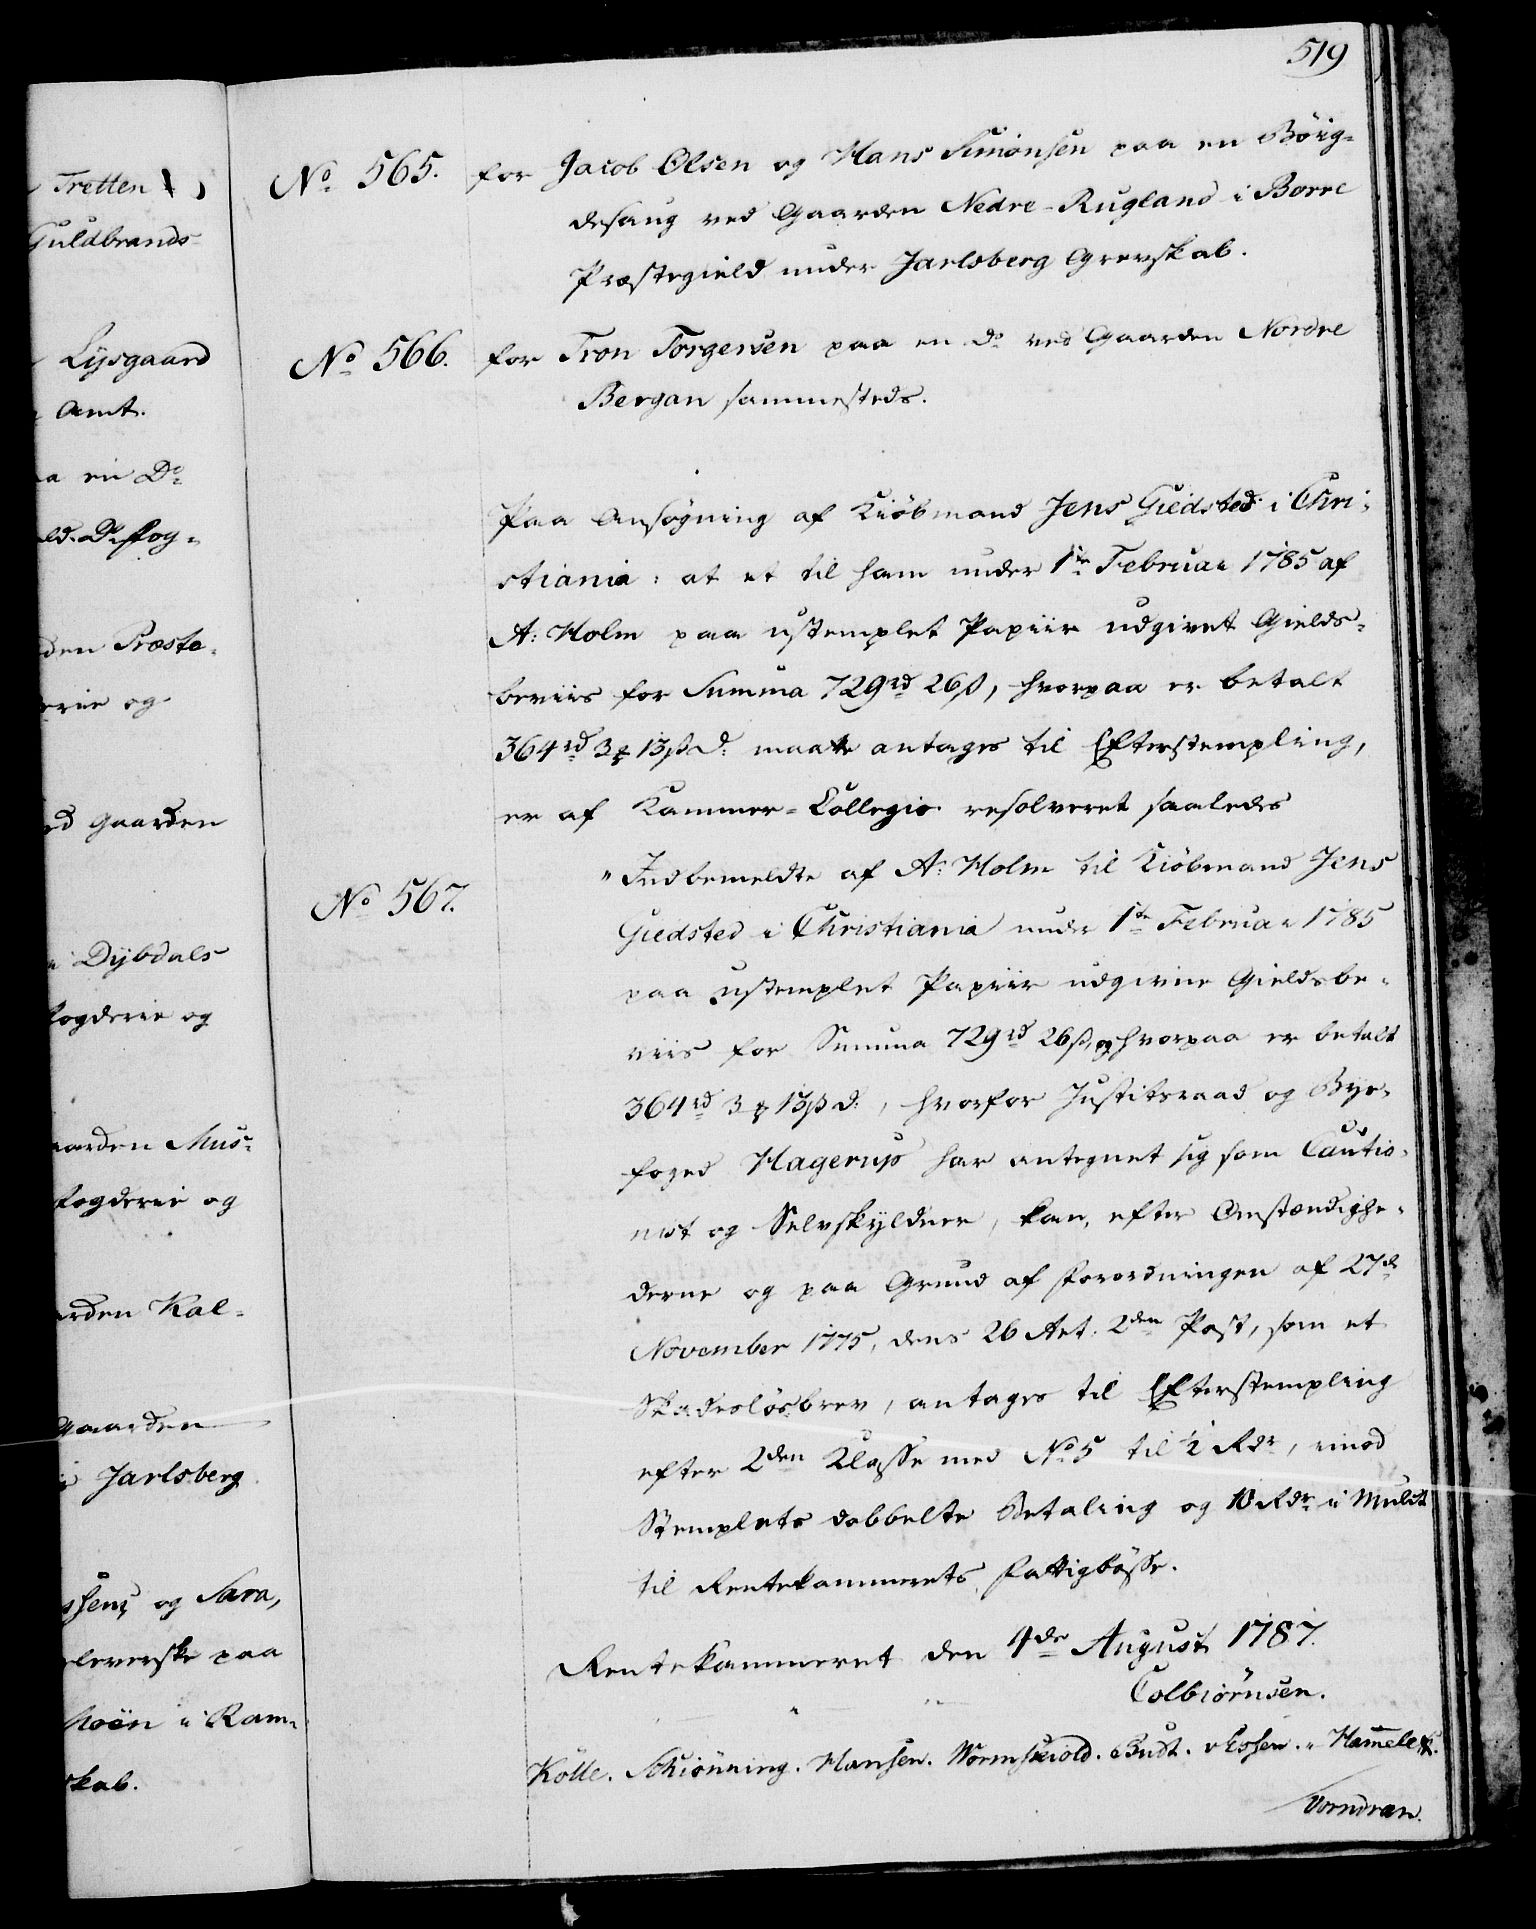 519
Tretten
Guldbrands-
Lysgaard
Amt.
en Do
den Præste-
og
Gaarden
Dybdals
fogderie og
aarden Mus-
fogderie og
arden Kal-
Gaarden
i Jarlsberg
og Sara,
paa
Moën i Ram-
skab.
No 565. for Jacob Olsen og Hans Simonsen paa en Böig-
desaug ved Gaarden Nedre-Rugland i Borre
Præstegield under Jarlsberg Grevskab.
No 566. for Tron Torgersen paa en Do ved Gaarden Nordre
Bergan sammesteds.
Paa Ansøgning af Kiöbmand Jens Giedsted i Chri-
stiania: at et til ham under 1te Februar 1785 af
A: Holm paa ustemplet Papiir udgivet Gields-
beviis for Summa 729rd 26ß, hvorpaa er betalt
364rd 3 13ß d: maatte antages til Efterstempling,
er af Kammer-Collegio resolveret saaledes
No 567. "Indbemeldte af A: Holm til Kiöbmand Jens
Giedsted i Christiania under 1te Februar 1785
paa ustemplet Papiir udgivne Gieldsbe-
viis for Summa 729rd 26ß, og hvorpaa er betalt
364rd 3 13ß d:, hvorfor Justitsraad og Bye-
foged Hagerup har antegnet sig som Cautio-
nist og Selvskyldner, kan, efter Omstændighe-
derne og paa Grund af Forordningen af 27de
November 1775, dens 26 Art. 2den Post, som et
Skadeslösbrev, antages til Efterstempling
efter 2den Klasse med No 5 til ½ Rdr, imod
Stemplets dobbelte Betaling og 10 Rdr i Mulct
til Rentekammerets Fattigbösse.
Rentekammeret den 4de August 1787.
Colbiörnsen.
Kölle. Schiönning. Hansen. Wormskiold. Budt. v Essen. Hammeleff.
Vorndran.